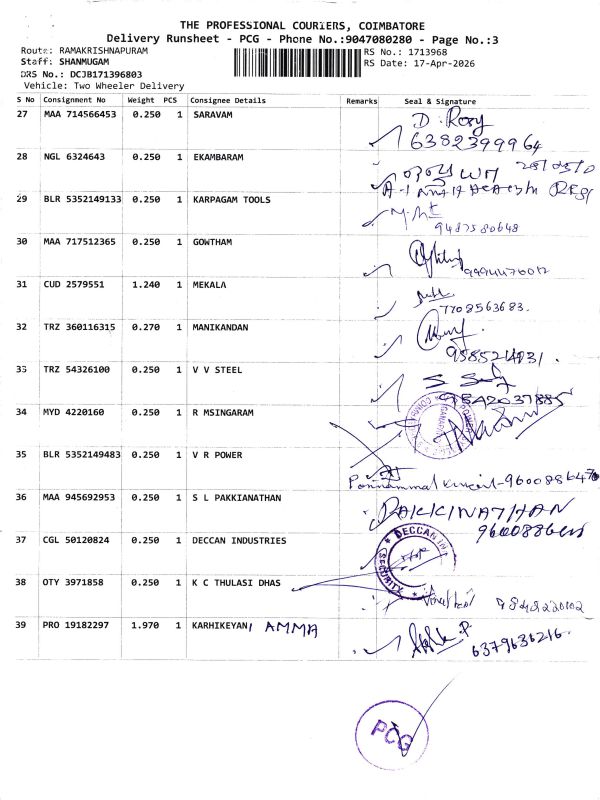 THE PROFESSIONAL COURIERS, COIMBATORE
Delivery Runsheet - PCG - Phone No.:9047080280 - Page No.:3
Route: RAMAKRISHNAPURAM
RS No.: 1713968
Staff: SHANMUGAM
RS Date: 17-Apr-2026
DRS No.: DCJB171396803
Vehicle: Two Wheeler Delivery
S No Consignment No Weight PCS Consignee Details Remarks Seal & Signature
27 MAA 714566453 0.250 1 SARAVAM D. Rosy
6382399964
28 NGL 6324643 0.250 1 EKAMBARAM
29 BLR 5352149133 0.250 1 KARPAGAM TOOLS
9487580648
30 MAA 717512365 0.250 1 GOWTHAM
31 CUD 2579551 1.240 1 MEKALA
7708563683.
32 TRZ 360116315 0.270 1 MANIKANDAN
33 TRZ 54326100 0.250 1 V V STEEL
9842037885
34 MYD 4220160 0.250 1 R MSINGARAM
35 BLR 5352149483 0.250 1 V R POWER
36 MAA 945692953 0.250 1 S L PAKKIANATHAN PAKKINATHAN
37 CGL 50120824 0.250 1 DECCAN INDUSTRIES DECCAN IN
SECURITY
38 OTY 3971858 0.250 1 K C THULASI DHAS
39 PRO 19182297 1.970 1 KARHIKEYAN AMMA
6379636216.
PCG